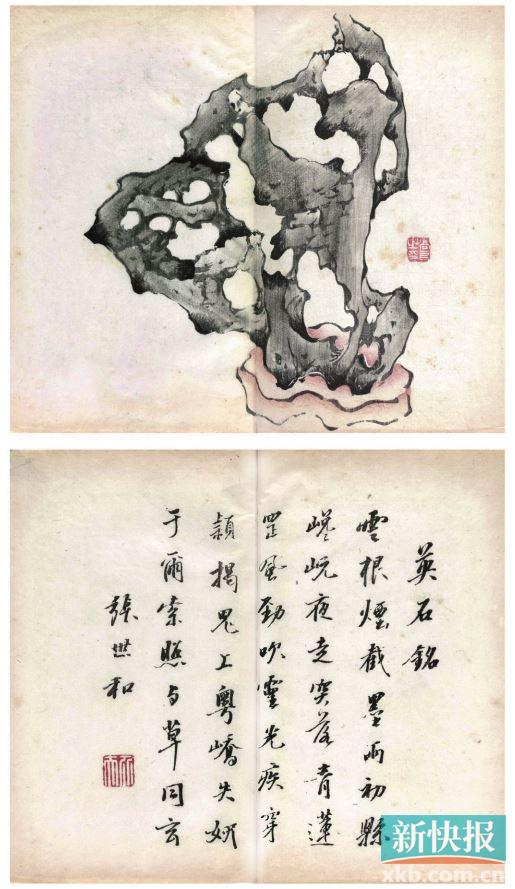 英石銘
雲根煙截墨雨初縣
岏夜走突落青蓮
罡風勁吹靈光疾穿
穎揭鬼工粵嶠失妍
于爾索照与草同玄
張 和
新快报
xkb.com.cn